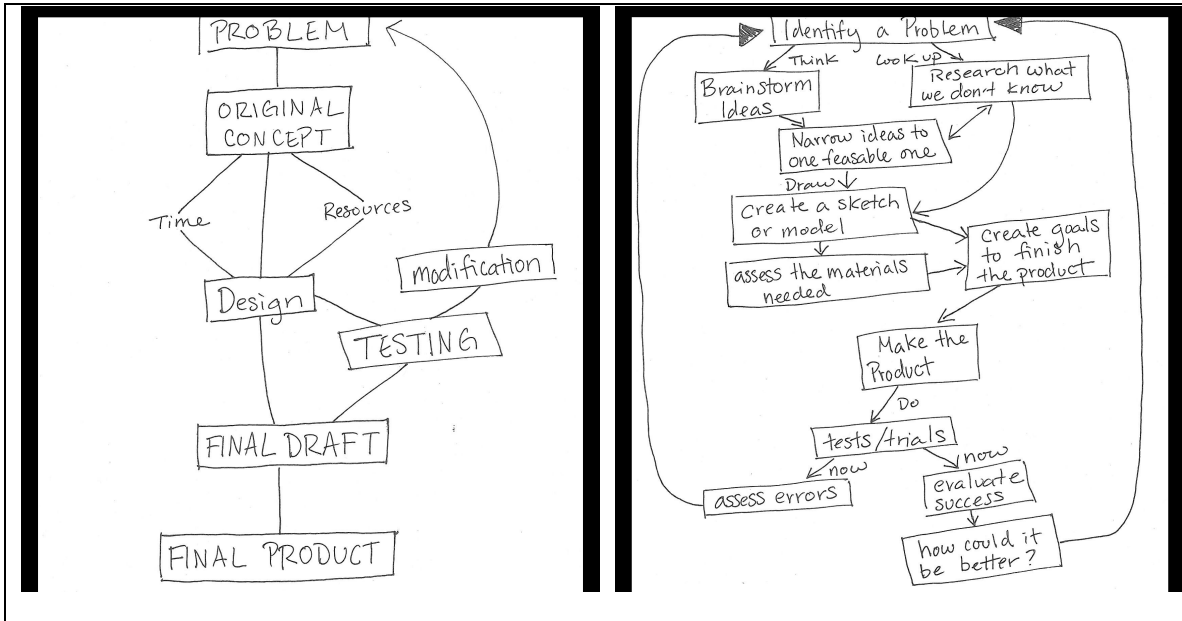 PROBLEM
ORIGINAL
CONCEPT
Time
Resources
modification
Design
TESTING
FINAL DRAFT
FINAL PRODUCT
Identify a Problem
Think
Look up
Brainstorm
Ideas
Research what
we don't know
Narrow ideas to
one feasable one
Draw
Create a sketch
or model
Create goals
to finish
the product
assess the materials
needed
Make the
Product
Do
tests/trials
now
now
assess errors
evaluate
success
how could it
be better?